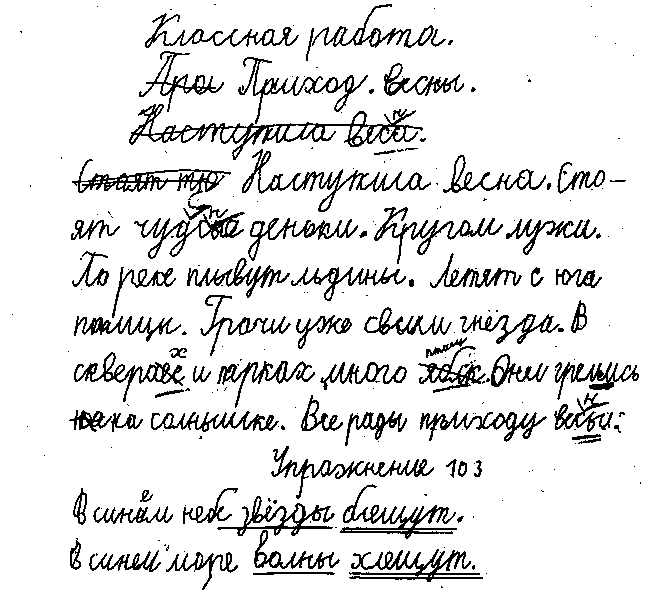 Классная работа.
При Приход весны.
Наступила весна.
Стоят тю Наступила весна. Сто-
ят чудные деньки. Кругом лужи.
По реке плывут льдины. Летят с юга
птицы. Грачи уже свили гнёзда. В
скверах и парках много птиц. Они грелись
на солнышке. Все рады приходу весны.
Упражнение 103
В синем небе звёзды блещут.
В синем море волны хлещут.